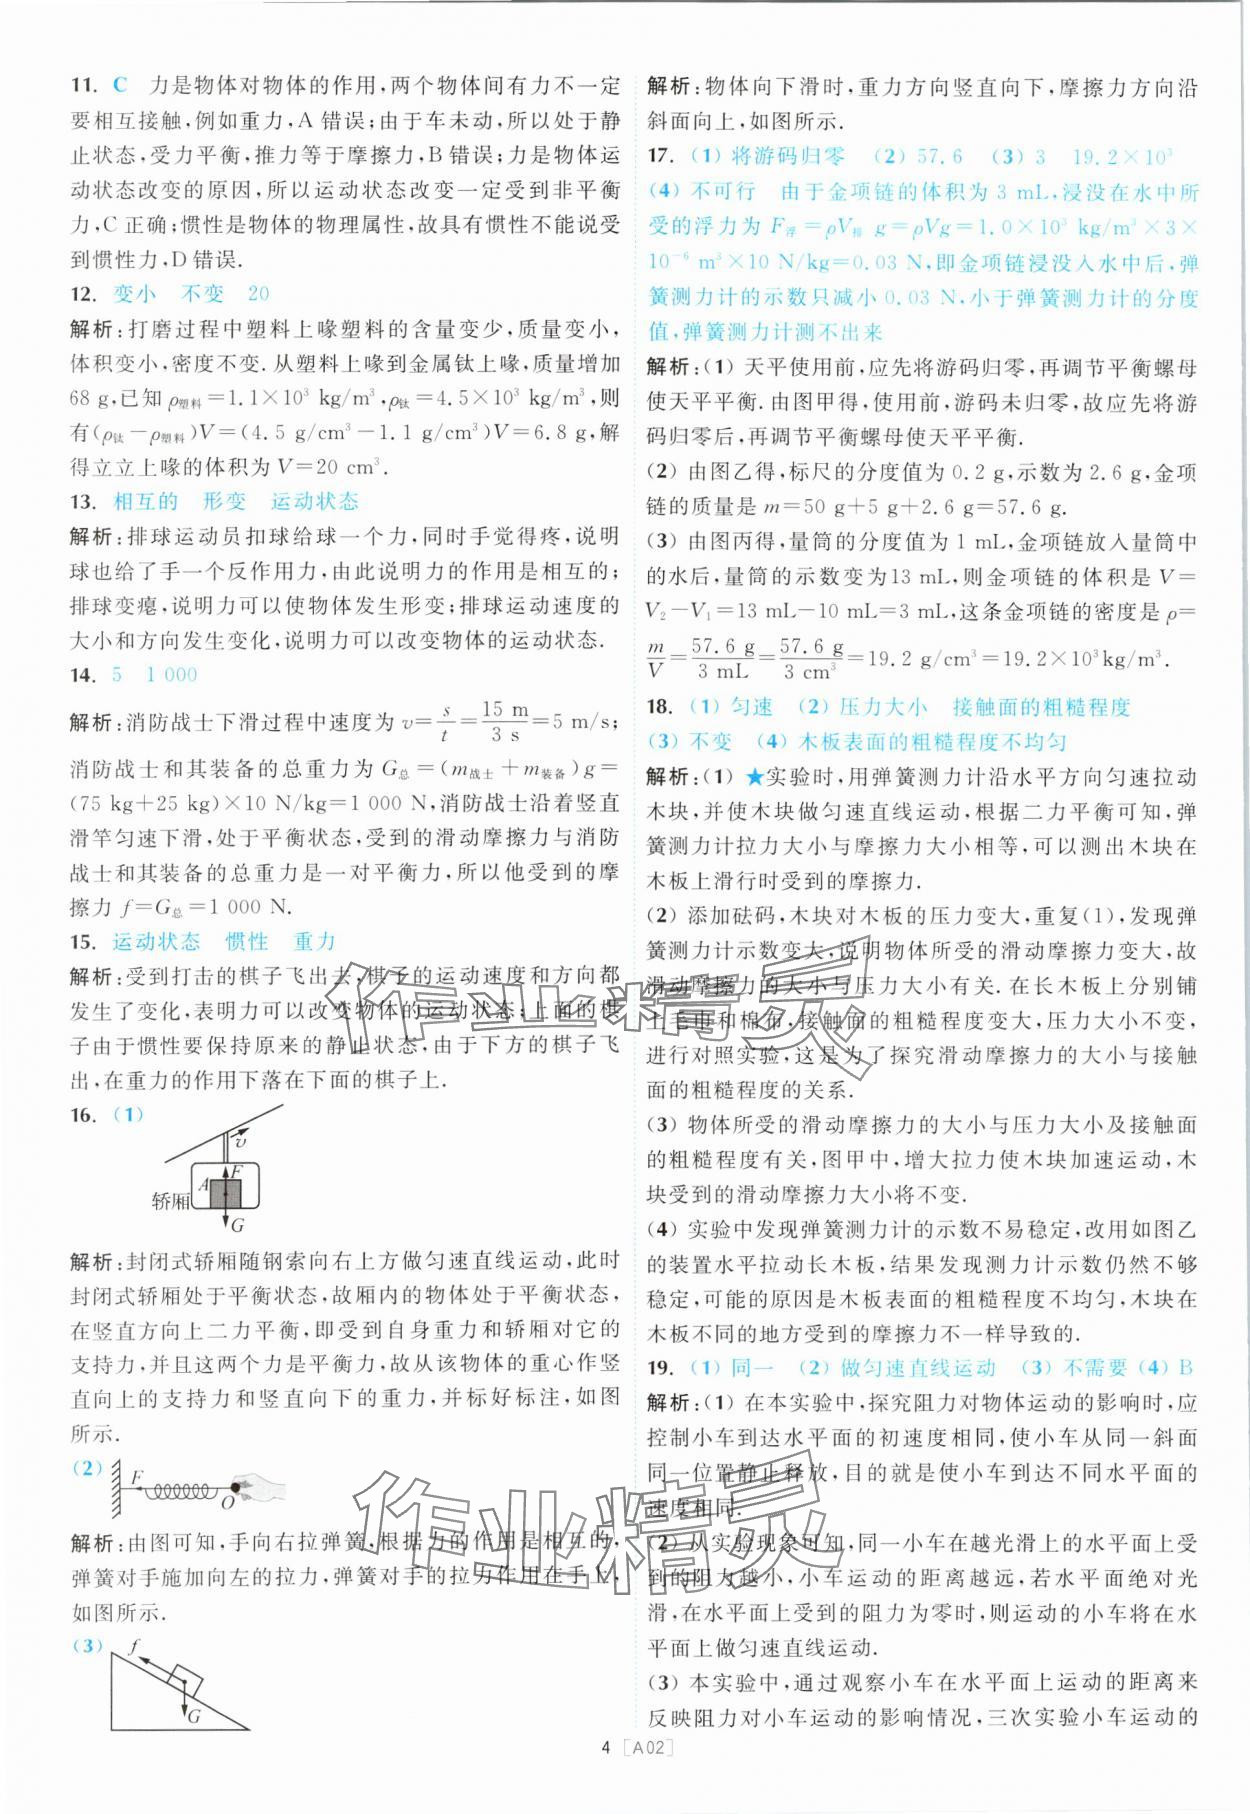 11. C 力是物体对物体的作用,两个物体间有力不一定
要相互接触,例如重力,A 错误;由于车未动,所以处于静
止状态,受力平衡,推力等于摩擦力,B 错误;力是物体运
动状态改变的原因,所以运动状态改变一定受到非平衡
力,C 正确;惯性是物体的物理属性,故具有惯性不能说受
到惯性力,D 错误.
12. 变小 不变 20
解析:打磨过程中塑料上喙塑料的含量变少,质量变小,
体积变小,密度不变.从塑料上喙到金属钛上喙,质量增加
68 g,已知 ρ塑料=1.1×10³ kg/m³,ρ钛=4.5×10³ kg/m³,则
有(ρ钛-ρ塑料)V=(4.5 g/cm³-1.1 g/cm³)V=6.8 g,解
得立立上喙的体积为 V=20 cm³.
13. 相互的 形变 运动状态
解析:排球运动员扣球给球一个力,同时手觉得疼,说明
球也给了手一个反作用力,由此说明力的作用是相互的;
排球变瘪,说明力可以使物体发生形变;排球运动速度的
大小和方向发生变化,说明力可以改变物体的运动状态.
14. 5 1 000
解析:消防战士下滑过程中速度为 v=s/t=15 m/3 s=5 m/s;
消防战士和其装备的总重力为 G总=(m战士+m装备)g=
(75 kg+25 kg)×10 N/kg=1 000 N,消防战士沿着竖直
滑竿匀速下滑,处于平衡状态,受到的滑动摩擦力与消防
战士和其装备的总重力是一对平衡力,所以他受到的摩
擦力 f=G总=1 000 N.
15. 运动状态 惯性 重力
解析:受到打击的棋子飞出去,棋子的运动速度和方向都
发生了变化,表明力可以改变物体的运动状态;上面的棋
子由于惯性要保持原来的静止状态,由于下方的棋子飞
出,在重力的作用下落在下面的棋子上.
16. (1)
v
F
A
轿厢
G
解析:封闭式轿厢随钢索向右上方做匀速直线运动,此时
封闭式轿厢处于平衡状态,故厢内的物体处于平衡状态,
在竖直方向上二力平衡,即受到自身重力和轿厢对它的
支持力,并且这两个力是平衡力,故从该物体的重心作竖
直向上的支持力和竖直向下的重力,并标好标注,如图
所示.
(2)
F
O
解析:由图可知,手向右拉弹簧,根据力的作用是相互的,
弹簧对手施加向左的拉力,弹簧对手的拉力作用在手上,
如图所示.
(3)
f
G
解析:物体向下滑时,重力方向竖直向下,摩擦力方向沿
斜面向上,如图所示.
17. (1) 将游码归零 (2) 57.6 (3) 3 19.2×10³
(4) 不可行 由于金项链的体积为 3 mL,浸没在水中所
受的浮力为 F浮=ρV排 g=ρVg=1.0×10³ kg/m³×3×
10⁻⁶ m³×10 N/kg=0.03 N,即金项链浸没入水中后,弹
簧测力计的示数只减小 0.03 N,小于弹簧测力计的分度
值,弹簧测力计测不出来
解析:(1) 天平使用前,应先将游码归零,再调节平衡螺母
使天平平衡.由图甲得,使用前,游码未归零,故应先将游
码归零后,再调节平衡螺母使天平平衡.
(2) 由图乙得,标尺的分度值为 0.2 g,示数为 2.6 g,金项
链的质量是 m=50 g+5 g+2.6 g=57.6 g.
(3) 由图丙得,量筒的分度值为 1 mL,金项链放入量筒中
的水后,量筒的示数变为13 mL,则金项链的体积是 V=
V₂-V₁=13 mL-10 mL=3 mL,这条金项链的密度是 ρ=
m/V=57.6 g/3 mL=57.6 g/3 cm³=19.2 g/cm³=19.2×10³kg/m³.
18. (1) 匀速 (2) 压力大小 接触面的粗糙程度
(3) 不变 (4) 木板表面的粗糙程度不均匀
解析:(1) ★实验时,用弹簧测力计沿水平方向匀速拉动
木块,并使木块做匀速直线运动,根据二力平衡可知,弹
簧测力计拉力大小与摩擦力大小相等,可以测出木块在
木板上滑行时受到的摩擦力.
(2) 添加砝码,木块对木板的压力变大,重复(1),发现弹
簧测力计示数变大,说明物体所受的滑动摩擦力变大,故
滑动摩擦力的大小与压力大小有关.在长木板上分别铺
上毛巾和棉布,接触面的粗糙程度变大,压力大小不变,
进行对照实验,这是为了探究滑动摩擦力的大小与接触
面的粗糙程度的关系.
(3) 物体所受的滑动摩擦力的大小与压力大小及接触面
的粗糙程度有关,图甲中,增大拉力使木块加速运动,木
块受到的滑动摩擦力大小将不变.
(4) 实验中发现弹簧测力计的示数不易稳定,改用如图乙
的装置水平拉动长木板,结果发现测力计示数仍然不够
稳定,可能的原因是木板表面的粗糙程度不均匀,木块在
木板不同的地方受到的摩擦力不一样导致的.
19. (1) 同一 (2) 做匀速直线运动 (3) 不需要 (4) B
解析:(1) 在本实验中,探究阻力对物体运动的影响时,应
控制小车到达水平面的初速度相同,使小车从同一斜面
同一位置静止释放,目的就是使小车到达不同水平面的
速度相同.
(2) 从实验现象可知,同一小车在越光滑上的水平面上受
到的阻力越小,小车运动的距离越远,若水平面绝对光
滑,在水平面上受到的阻力为零时,则运动的小车将在水
平面上做匀速直线运动.
(3) 本实验中,通过观察小车在水平面上运动的距离来
反映阻力对小车运动的影响情况,三次实验小车运动的
4 [A02]
作业精灵
作业精灵